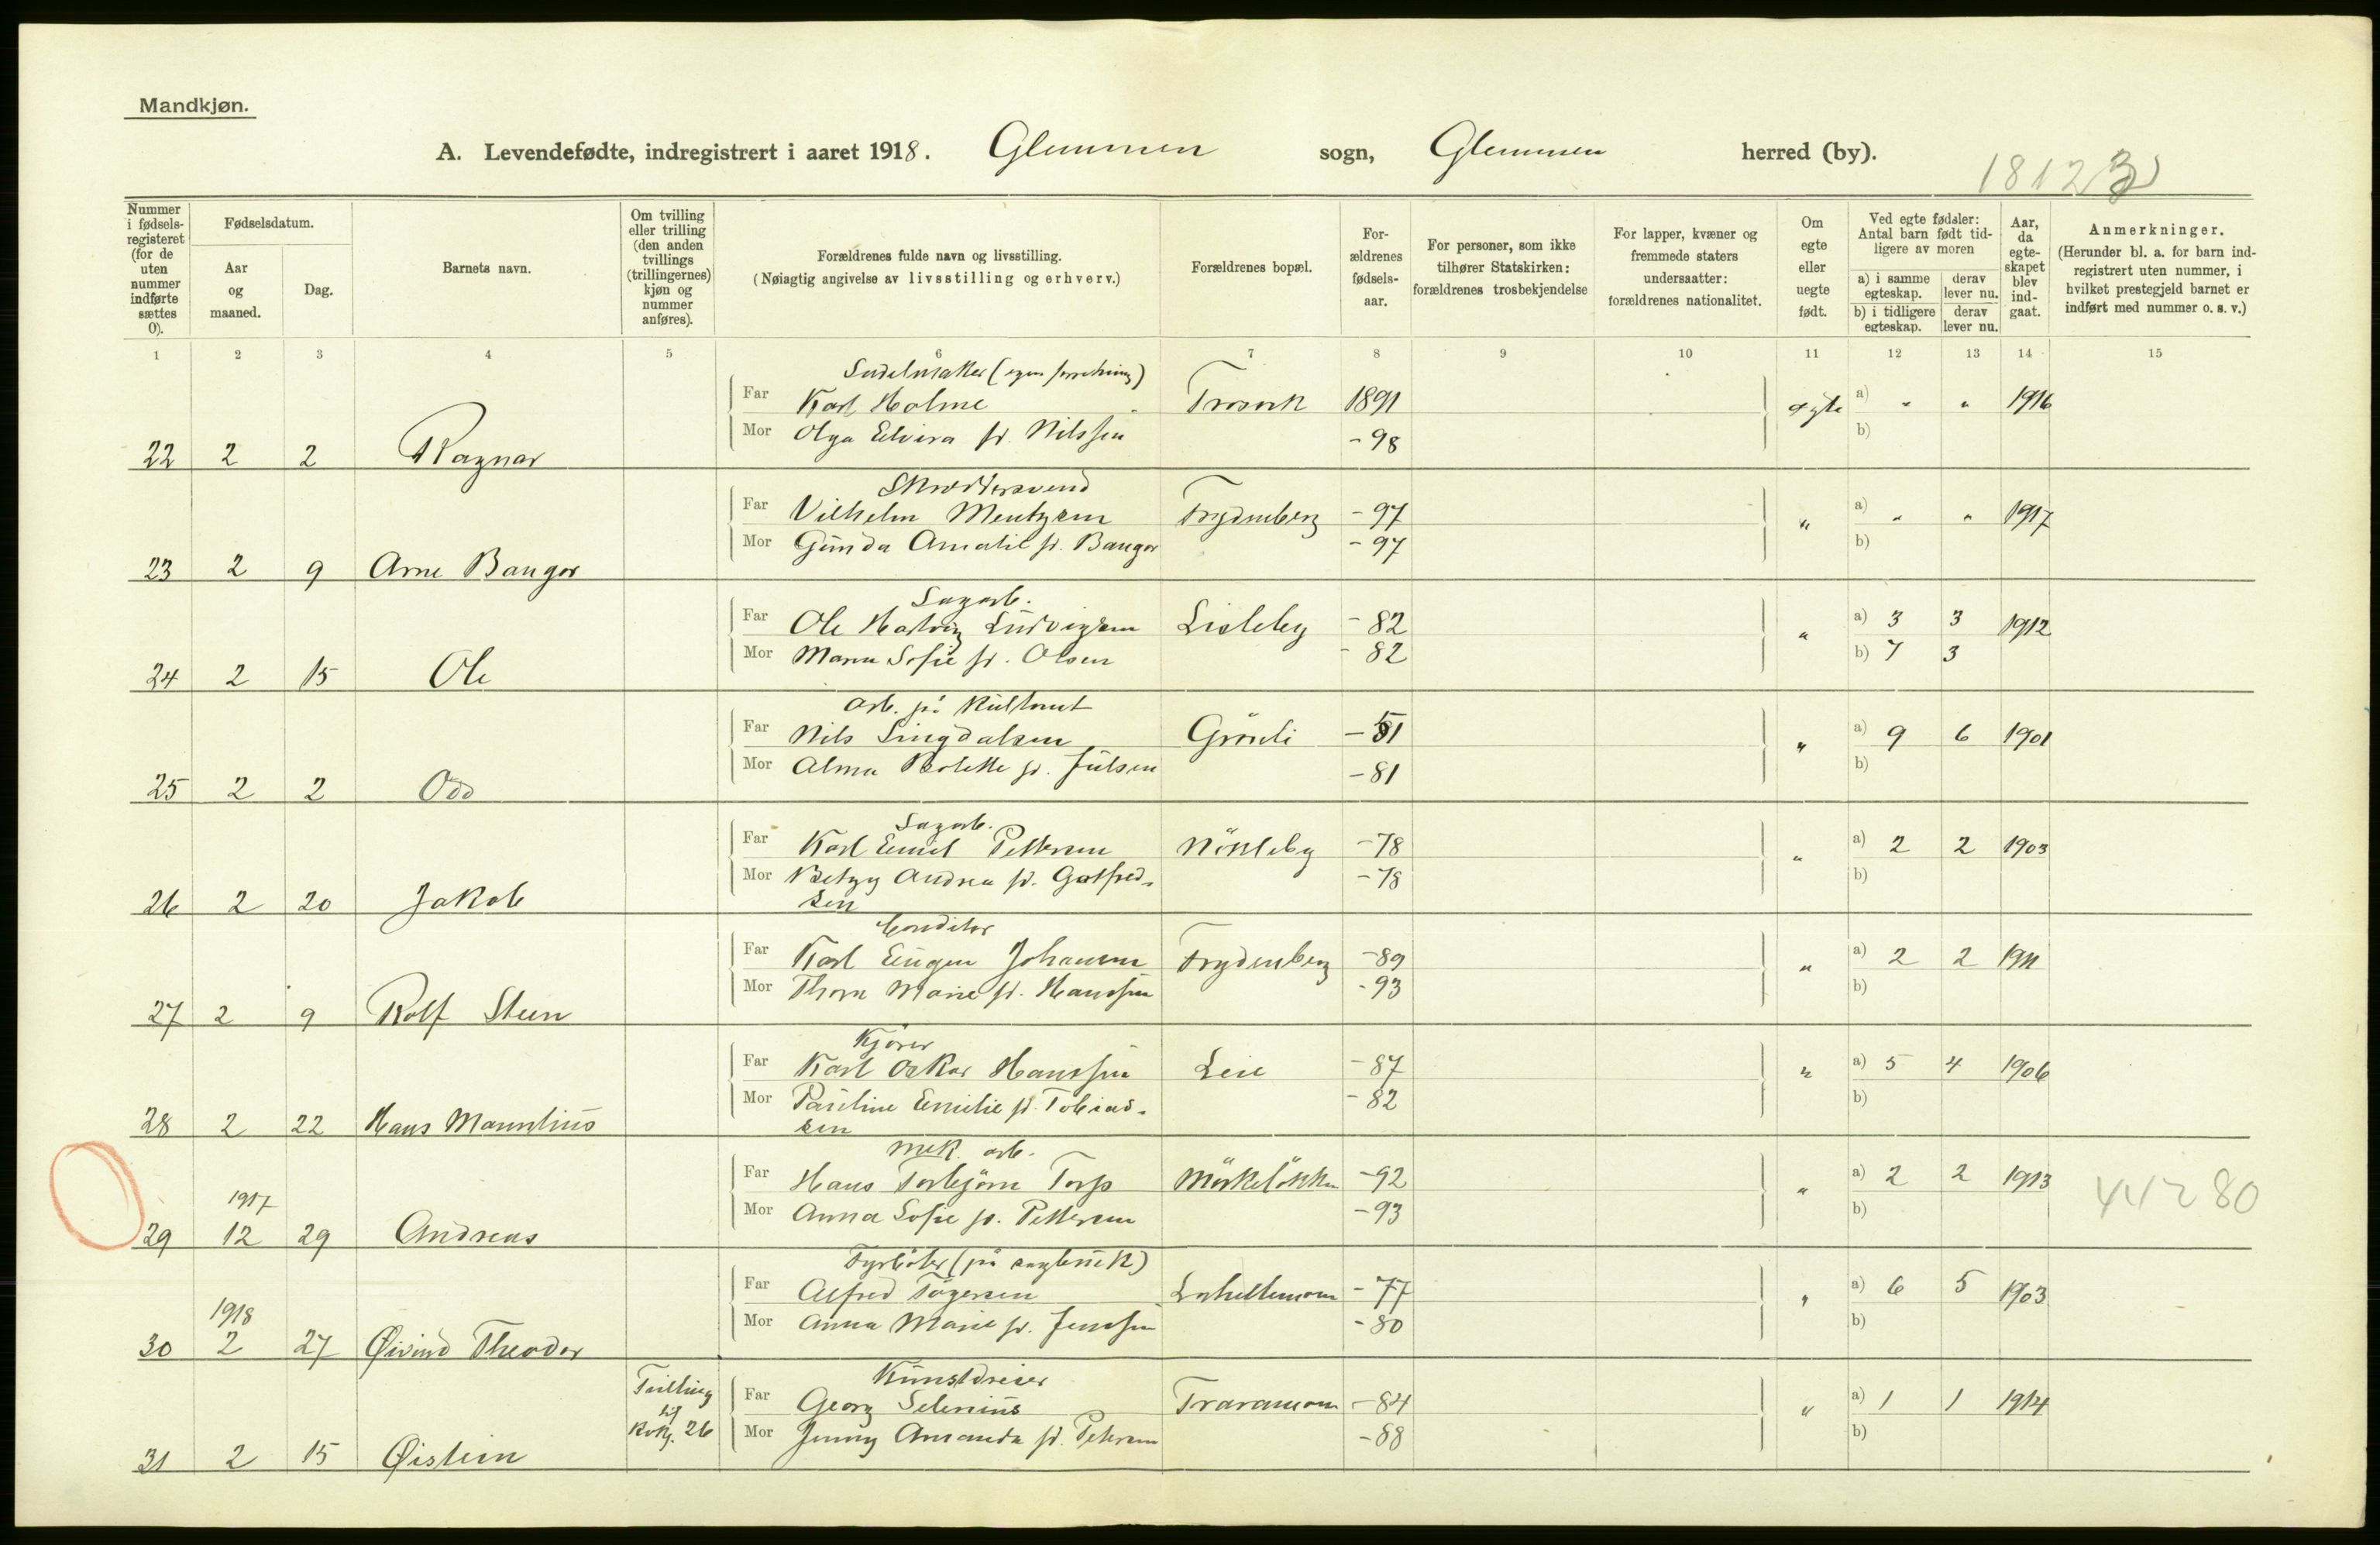 Mandkjøn.
A. Levendefødte, indregistrert i aaret 1918. Glemmen sogn, Glemmen herred (by).
1812
Nummer i fødsels-registeret (for de uten nummer indførte sættes 0).
Fødselsdatum.
Aar og maaned.
Dag.
Barnets navn.
Om tvilling eller trilling (den anden tvillings (trillingernes) kjøn og nummer anføres).
Forældrenes fulde navn og livsstilling.
(Nøiagtig angivelse av livsstilling og erhverv.)
Forældrenes bopæl.
For-ældrenes fødsels-aar.
For personer, som ikke tilhører Statskirken: forældrenes trosbekjendelse
For lapper, kvæner og fremmede staters undersaatter: forældrenes nationalitet.
Om egte eller uegte født.
Ved egte fødsler: Antal barn født tid-ligere av moren
a) i samme egteskap. derav lever nu.
b) i tidligere egteskap. derav lever nu.
Aar, da egte-skapet blev ind-gaat.
Anmerkninger.
(Herunder bl. a. for barn ind-registrert uten nummer, i hvilket prestegjeld barnet er indført med nummer o. s. v.)
1 2 3 4 5 6 7 8 9 10 11 12 13 14 15
Sadelmaker (egen forretning)
Far Karl Holme Trosvik 1891 egte a) " " 1916
Mor Olga Elvira f. Nilssen - 98 b)
22 2 2 Ragnar
Skræddersvend
Far Vilhelm Mentzen Frydenberg - 97 " a) " " 1917
Mor Gunda Amalie f. Bangor - 97 b)
23 2 9 Arne Bangor
Sagarb.
Far Ole Hartvig Ludvigsen Lisleby - 82 " a) 3 3 1912
Mor Maren Sofie f. Olsen - 82 b) 7 3
24 2 15 Ole
Arb. på
Far Nils Lingdalsen Grönli - 81 " a) 9 6 1901
Mor Alma f. Julsen - 81 b)
25 2 2 Odd
Sagarb.
Far Karl Emil Pettersen Nökleby - 78 " a) 2 2 1903
Mor Betzy Andrea f. Gotfred- - 78 b)
sen
26 2 20 Jakob
Conditor
Far Karl Eugen Johansen Frydenberg - 89 " a) 2 2 1911
Mor Thora Marie f. Hanssen - 93 b)
27 2 9 Rolf Steen
Kjörer
Far Karl Oskar Hanssen Leie - 87 " a) 5 4 1906
Mor Pauline Emilie f. Tobias- - 82 b)
sen
28 2 22 Hans
Mek. arb.
Far Hans Torbjörn Torp - 92 " a) 2 2 1913 44280
Mor Anna Sofie f. Pettersen - 93 b)
1917
29 12 29 Andreas
Fyrböter (på sagbruk)
Far Alfred Tögersen - 77 " a) 6 5 1903
Mor Anna Marie f. Jenssen - 80 b)
1918
30 2 27 Øivind Theodor
Tvilling Kunstdreier
Far Georg Selenius Traramoen - 84 " a) 1 1 1914
26 Mor Jenny Amanda f. Petersen - 88 b)
31 2 15 Øistein